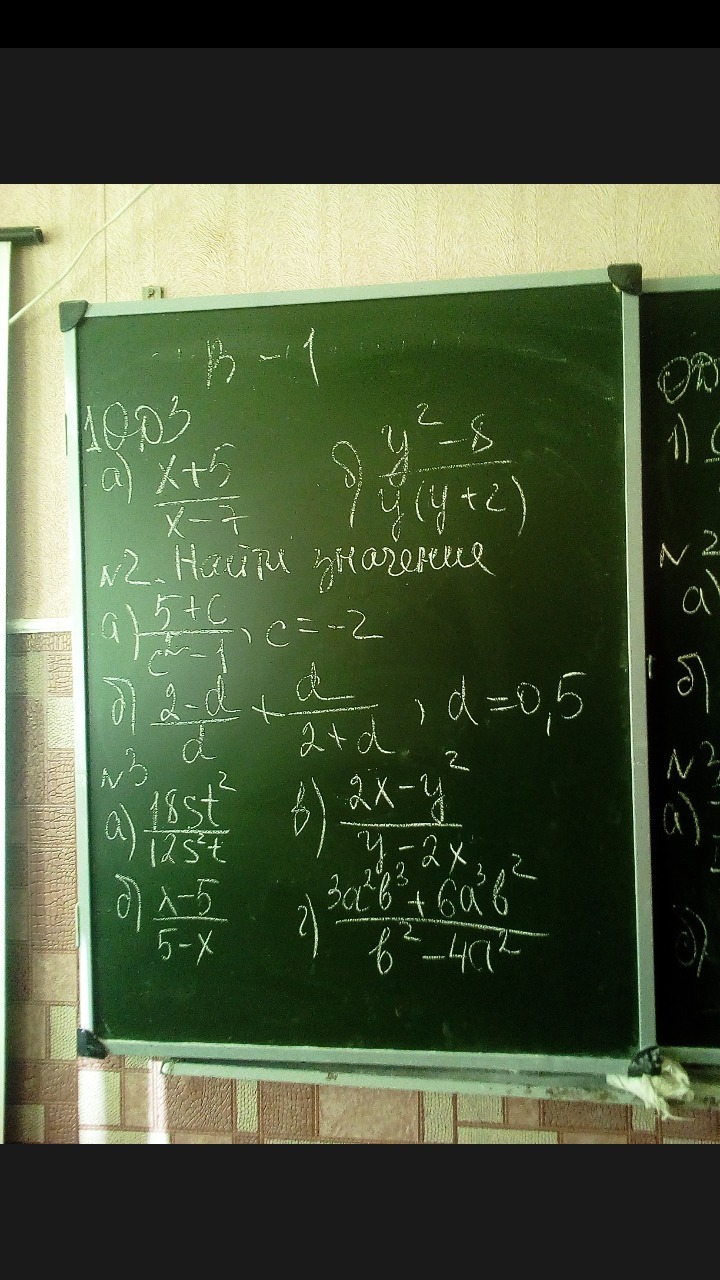 В - 1
1 ОДЗ
а) (x+5)/(x-7) б) (y²-8)/(y(y+2))
N2. Найти значение
а) (5+c)/(c²-1), c=-2
б) (2-d)/d + d/(2+d), d=0,5
N3
а) 18st²/12s²t в) (2x-y²)/(y-2x)
б) (x-5)/(5-x) г) (3a²b³+6a³b²)/(b²-4a²)
1)
N2
а)
б)
N3
а)